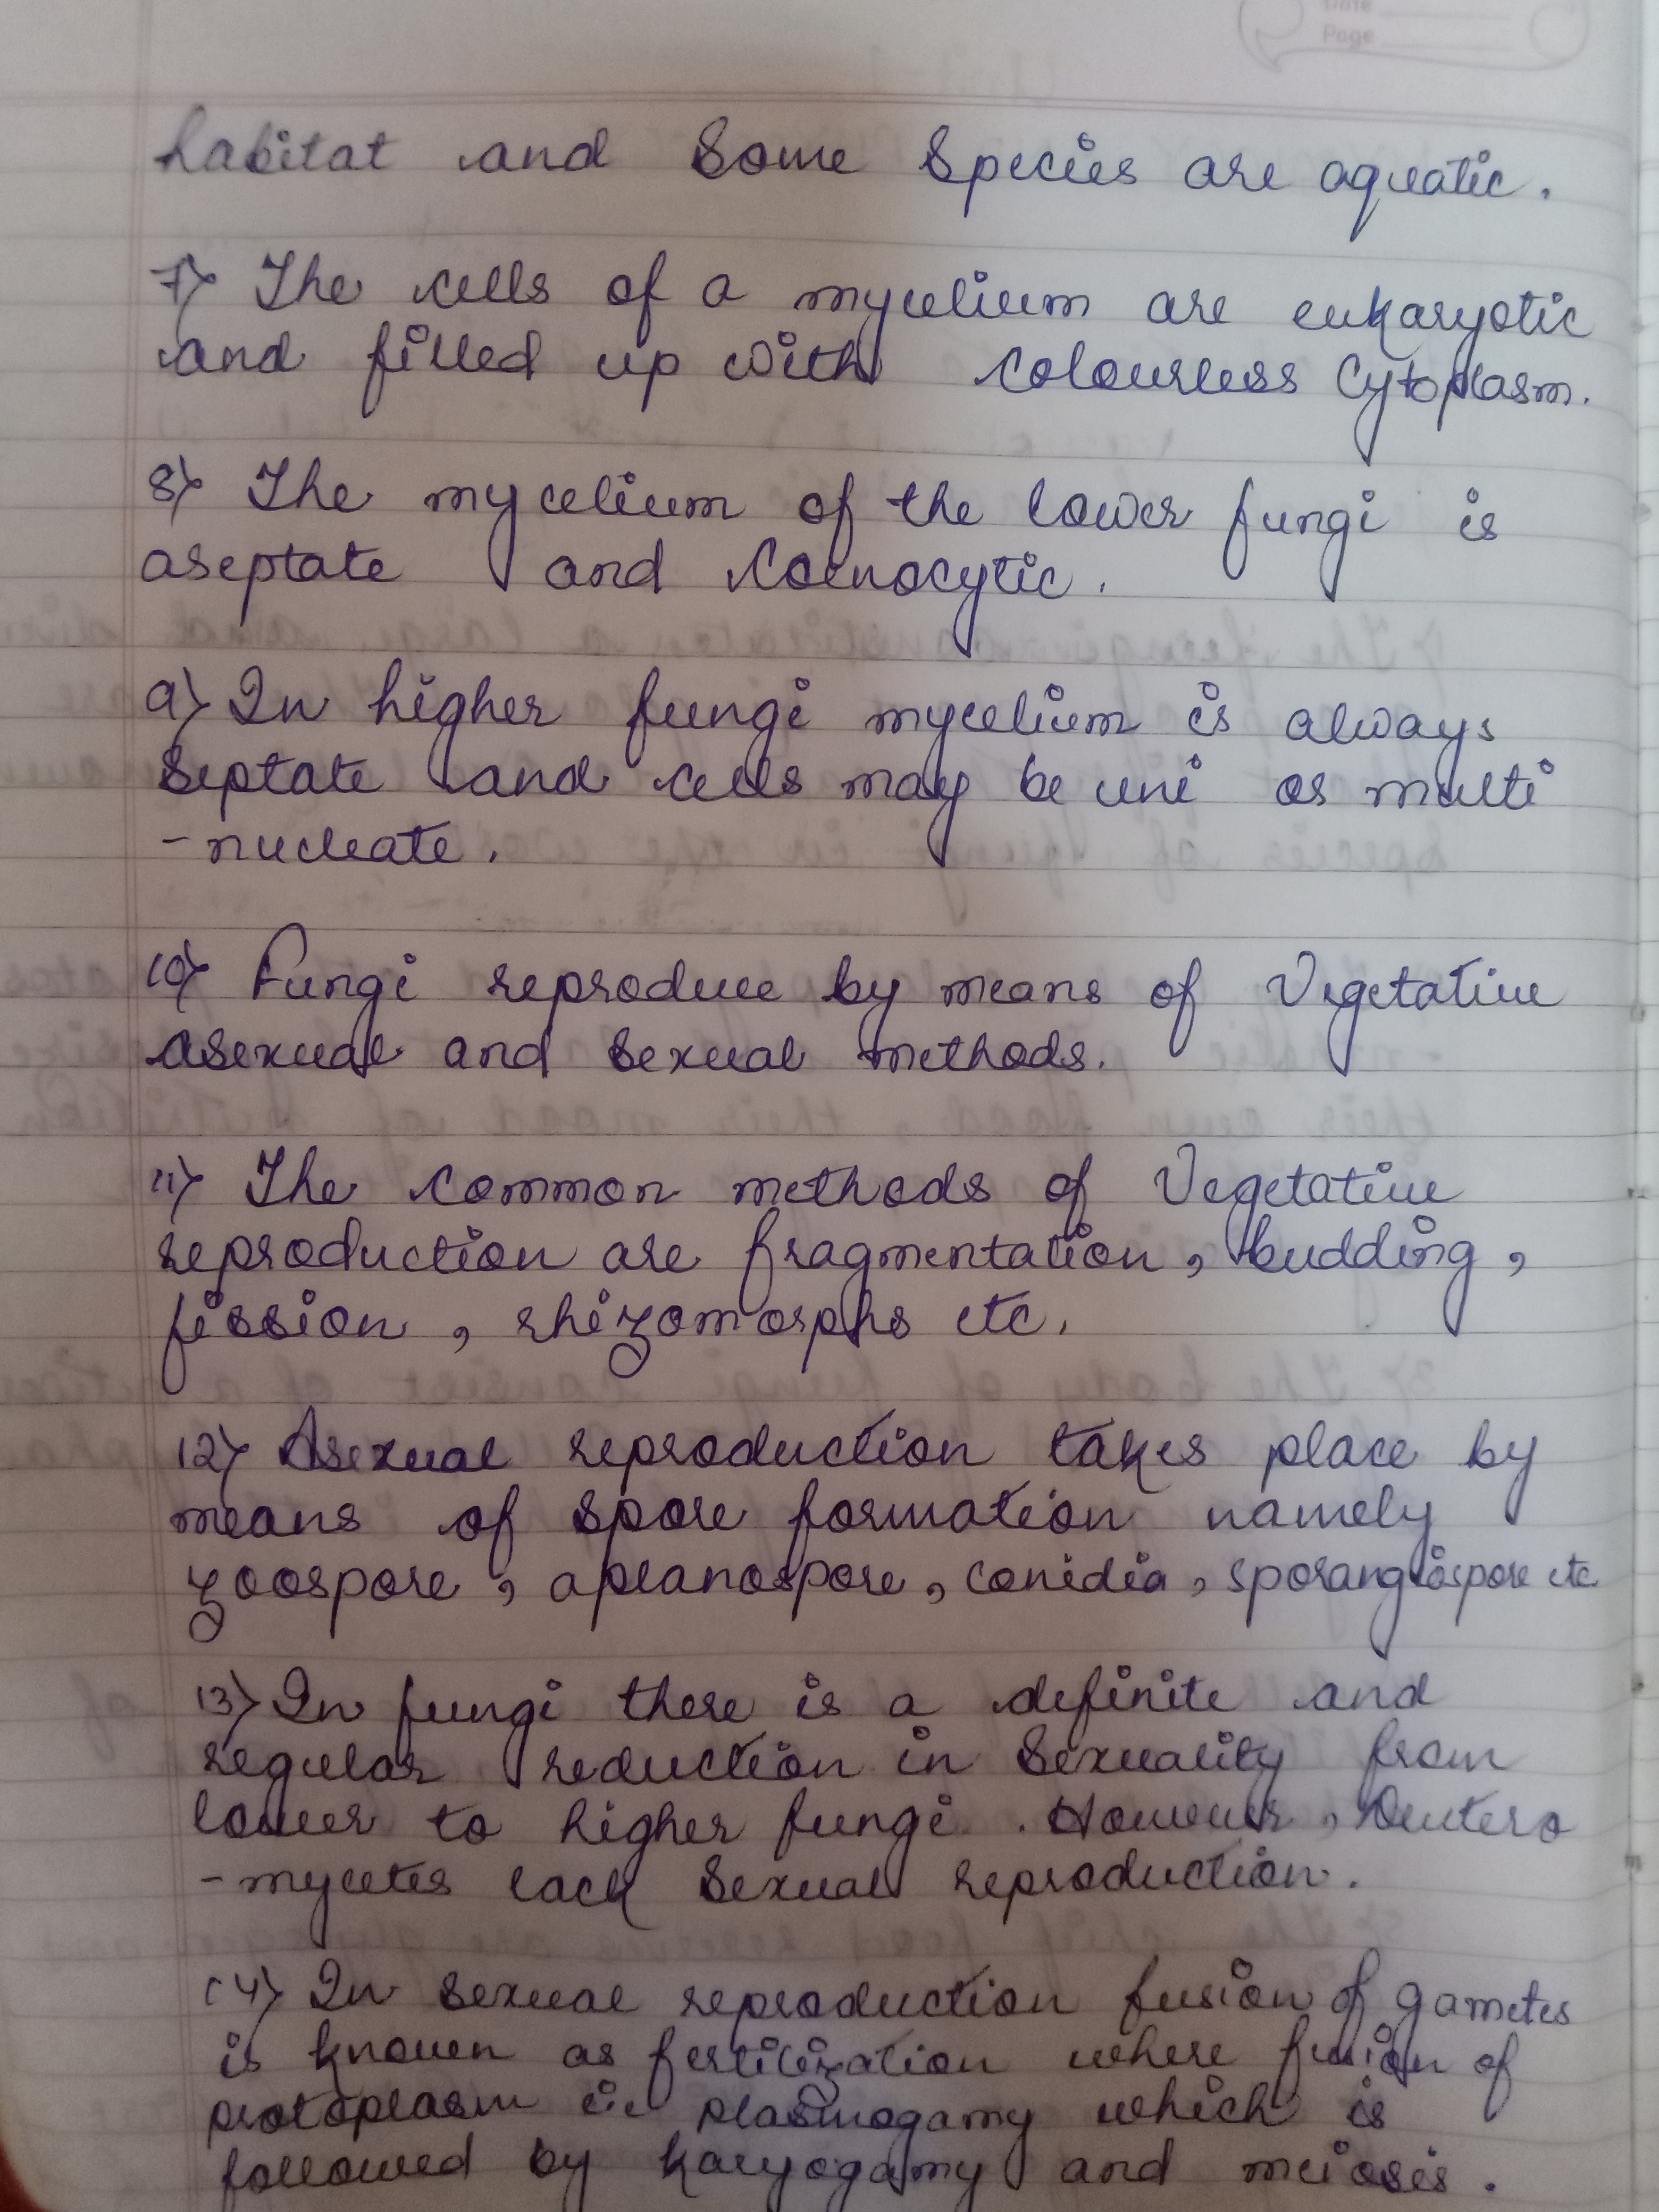 Date
Page
habitat and some species are aquatic.
7) The cells of a mycelium are eukaryotic
and filled up with colourless cytoplasm.
8) The mycelium of the lower fungi is
aseptate and coenocytic.
9) In higher fungi mycelium is always
septate and cells may be uni or multi
-nucleate.
10) Fungi reproduce by means of Vegetative
asexual and sexual methods.
11) The common methods of Vegetative
reproduction are fragmentation, budding,
fission, rhizomorphs etc.
12) Asexual reproduction takes place by
means of spore formation namely
zoospore, aplanospore, conidia, sporangiospore etc
13) In fungi there is a definite and
regular reduction in sexuality from
lower to higher fungi. However, Deutero
-mycetes lack sexual reproduction.
14) In sexual reproduction fusion of gametes
is known as fertilization where fusion of
protoplasm i.e plasmogamy which is
followed by karyogamy and meiosis.